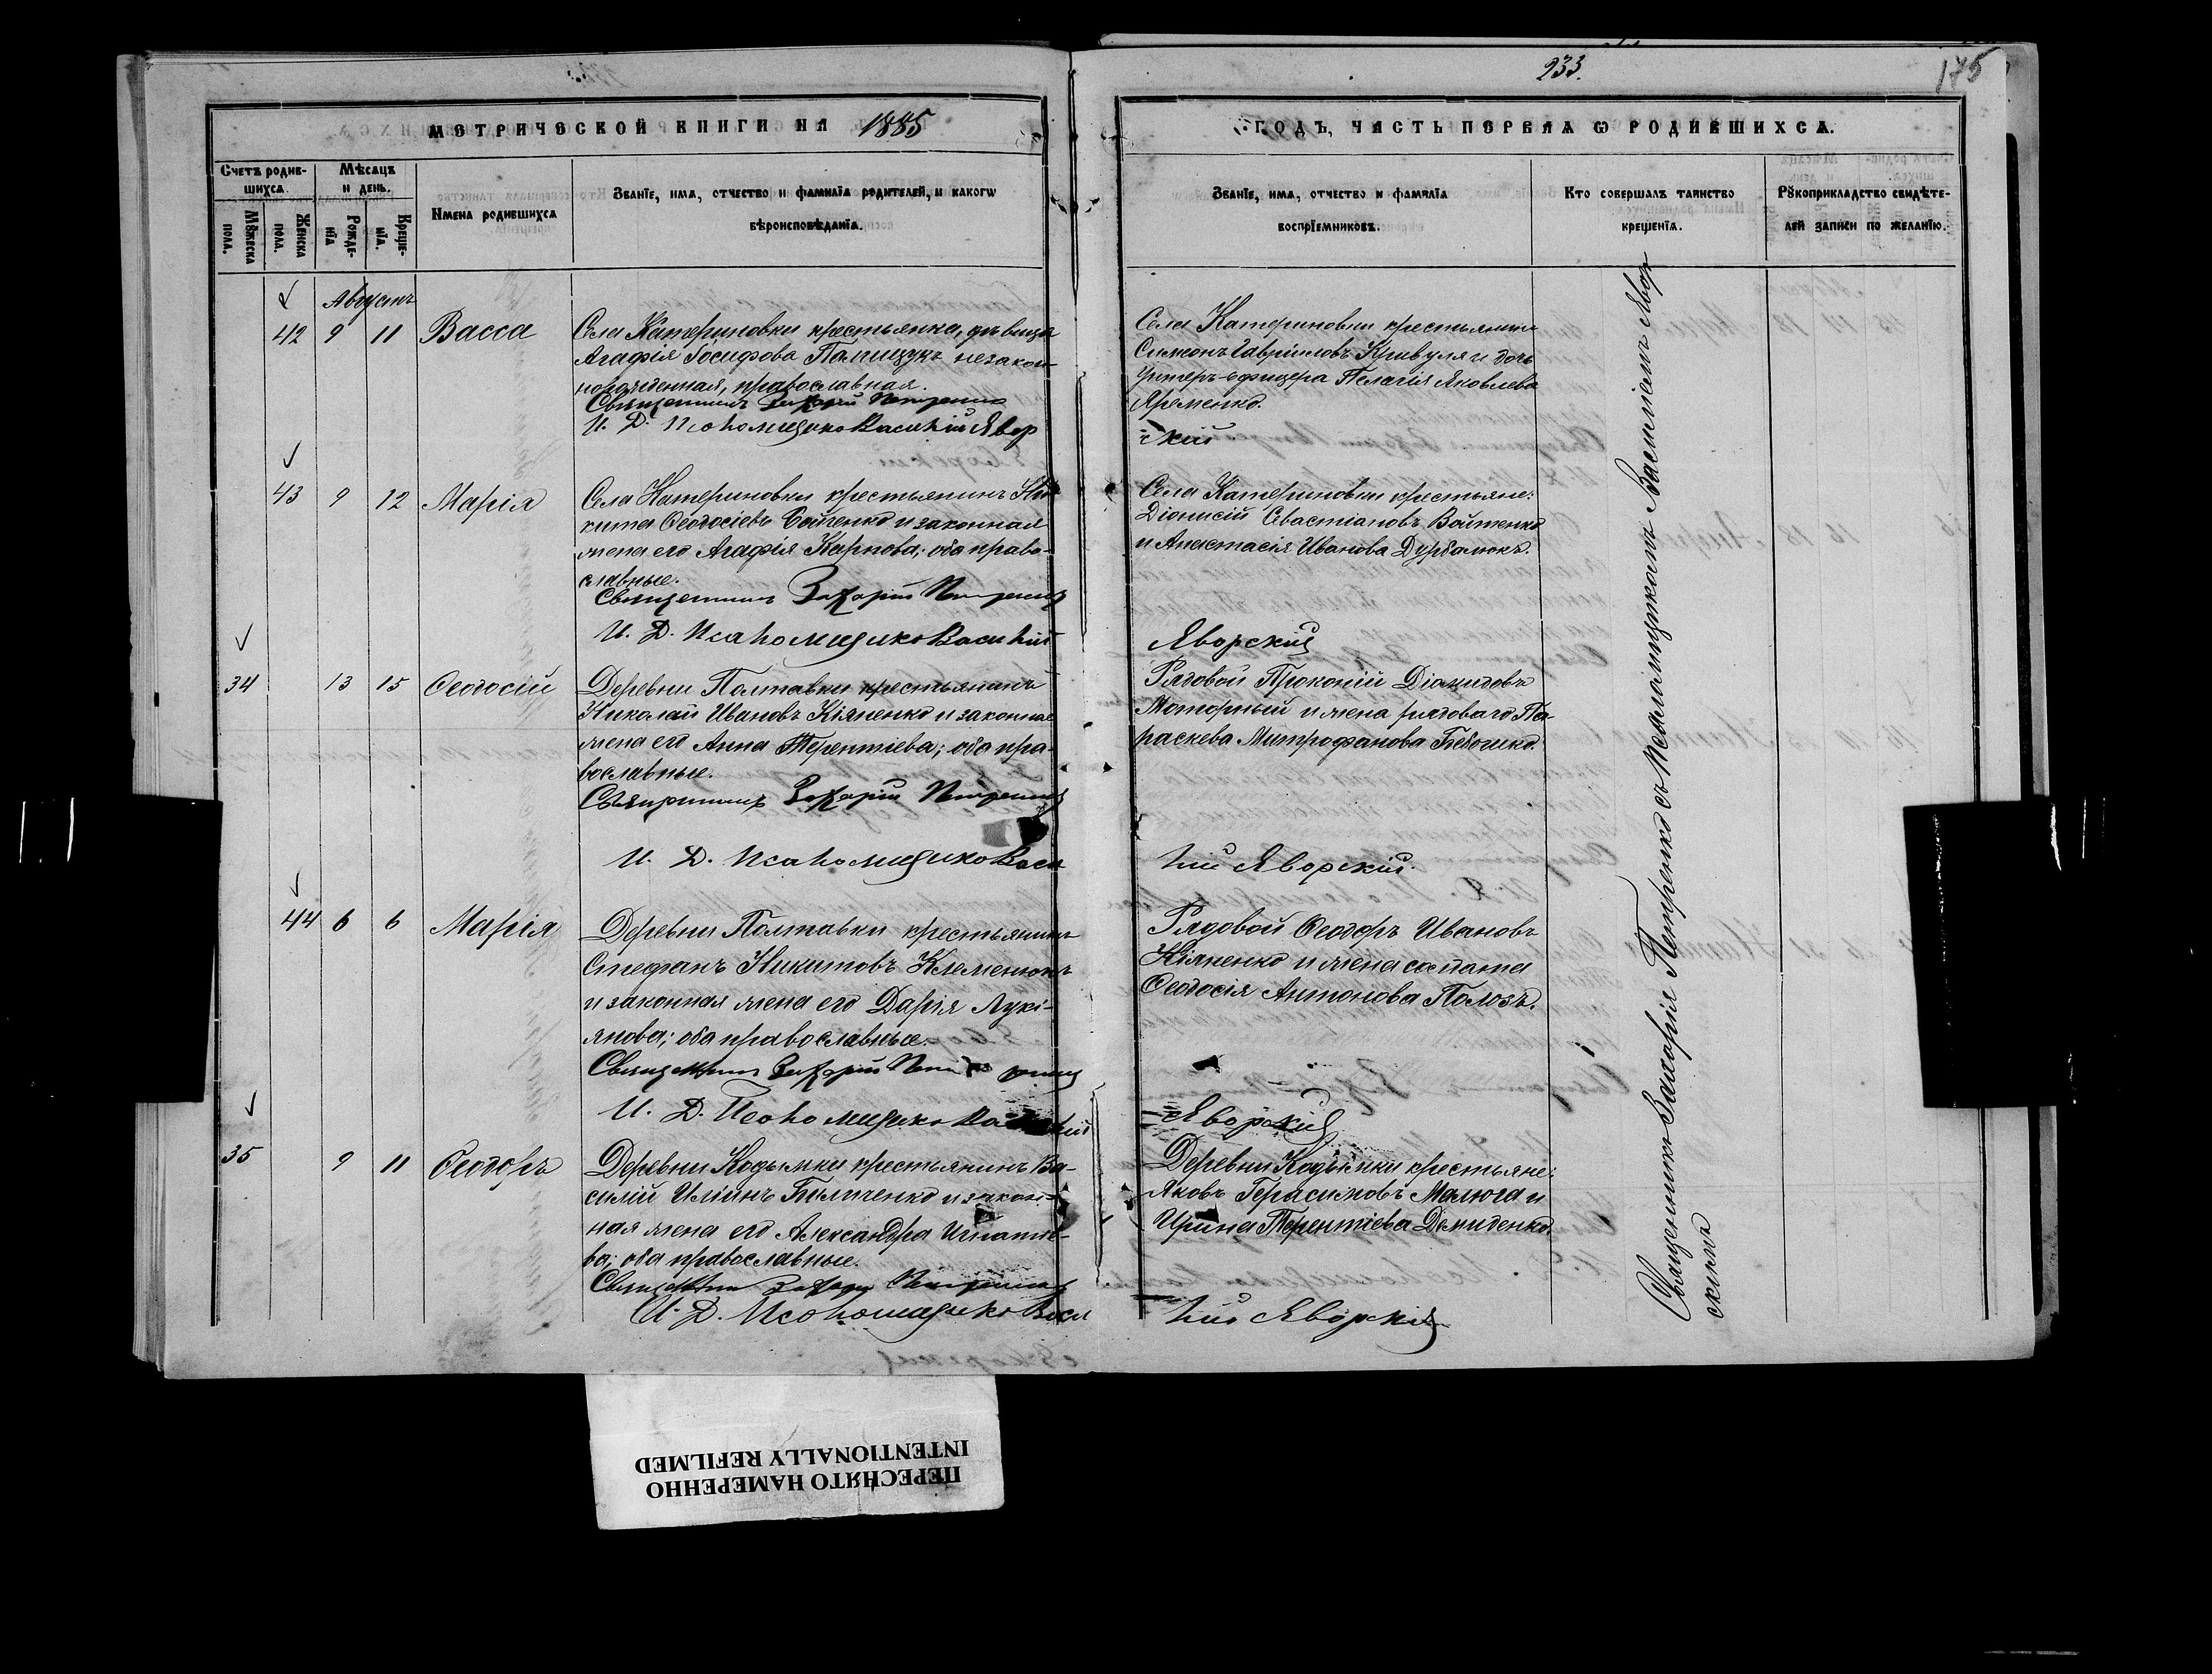 233.
175
МЕТРИЧЕСКОЙ КНИГИ НА 1885
ГОДЪ, ЧАСТЬ ПЕРВАЯ Ѡ РОДИВШИХСѦ.
Счетъ родив-
шихсѧ.
Мѣсѧцъ
и день.
Мꙋжеска
пола.
Женска
пола.
Рожде-
нїѧ.
Креще-
нїѧ.
Имена родившихсѧ
Званїе, имѧ, отчество и фамилїѧ родителей, и какогѡ
вѣроисповѣданїѧ.
Званїе, имѧ, отчество и фамилїѧ
воспрїемниковъ.
Кто совершалъ таинство
крещенїѧ.
Рꙋкоприкладство свидѣте-
лей записи по желанїю.
Августъ
42 9 11 Васса
Села Катериновки крестьянка, дѣвица
Агафія Іосифова Полищукъ незакон-
норожденная, православная.
Священникъ Захарій Петренко
И. Д. Псаломщика Василій Явор
Села Катериновки крестьянинъ
Симеонъ Гавріиловъ Кривуля и дочь
Унтеръ-офицера Пелагія Яковлева
Яременко.
скій
43 9 12 Марія
Села Катериновки крестьянинъ Ни-
кита Ѳеодосіевъ Войтенко и законная
жена его Агафія Карпова; оба право-
славные.
Священникъ Захарій Петренко
И. Д. Псаломщика Василій
Села Катериновки крестьяне:
Діонисій Севастіановъ Войтенко
и Анастасія Иванова Дурбалюкъ.
Яворскій
34 13 15 Ѳеодосій
Деревни Полтавки крестьянинъ
Николай Ивановъ Кіяненко и законная
жена его Анна Терентіева; оба пра-
вославные.
Священникъ Захарій Петренко
И. Д. Псаломщика Васи
Рядовой Прокопій Діомидовъ
Моторный и жена рядоваго Па-
раскева Митрофанова
лій Яворскій.
44 6 6 Марія
Деревни Полтавки крестьянинъ
Стефанъ Никитовъ Клеменюкъ
и законная жена его Дарія Лукі-
янова; оба православные.
Священникъ Захарій Петренко
И. Д. Псаломщика Василій
Рядовой Ѳеодоръ Ивановъ
Кіяненко и жена солдата
Ѳеодосія Антонова Полозъ.
Яворскій
35 9 11 Ѳеодоръ
Деревни Кодымки крестьянинъ Ва-
силій Иліинъ Биличенко и закон-
ная жена его Александра Игнатіе-
ва; оба православные.
Священникъ Захарій Петренко
И. Д. Псаломщика Васи
Деревни Кодымки крестьяне:
Яковъ Герасимовъ Малюга и
Ирина Терентіева Демиденко.
лій Яворскій
Священникъ Захарій Петренко съ Псаломщикомъ Василіемъ Явор
скимъ
ПЕРЕСНЯТО НАМЕРЕННО
INTENTIONALLY REFILMED